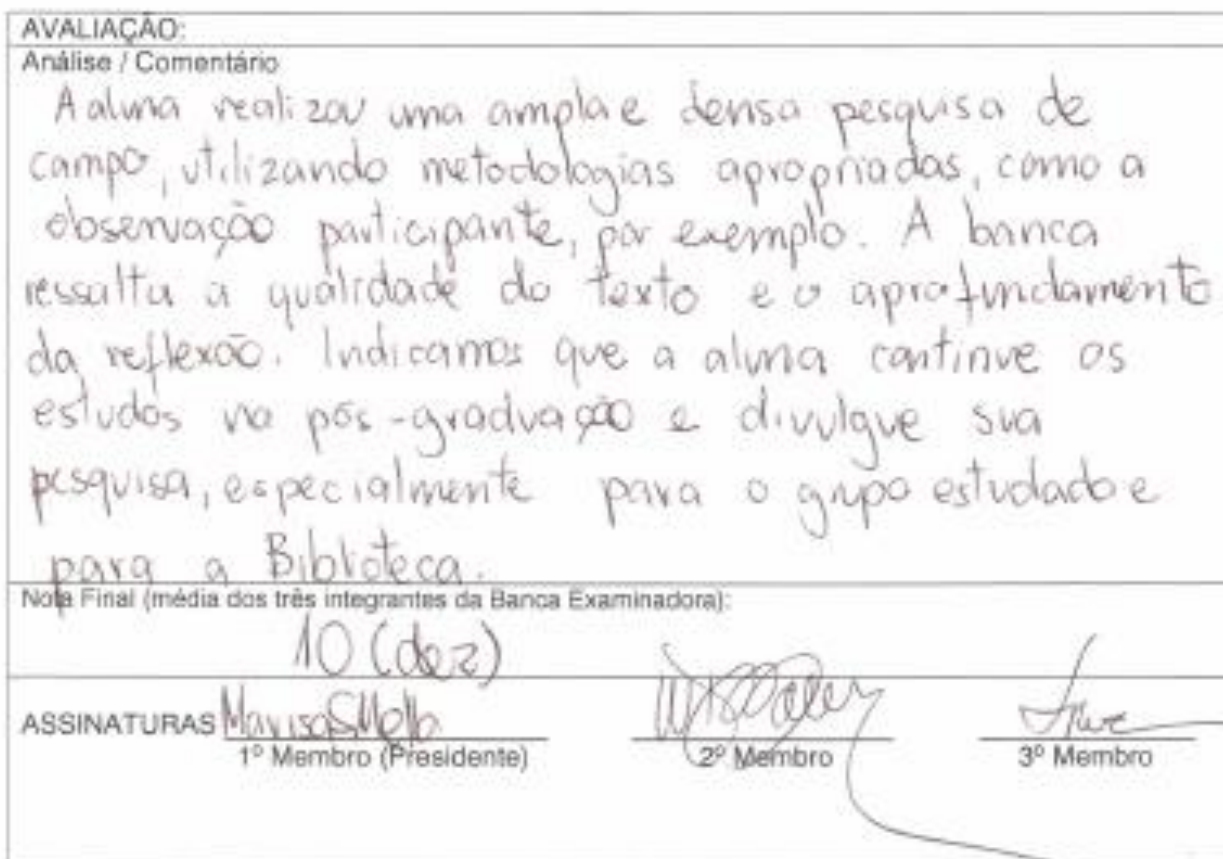 AVALIAÇÃO:
Análise / Comentário
A aluna realizou uma ampla e densa pesquisa de
campo, utilizando metodologias apropriadas, como a
observação participante, por exemplo. A banca
ressalta a qualidade do texto e o aprofundamento
da reflexão. Indicamos que a aluna continue os
estudos na pós-graduação e divulgue sua
pesquisa, especialmente para o grupo estudado e
para a Biblioteca.
Nota Final (média dos três integrantes da Banca Examinadora):
10 (dez)
ASSINATURAS Marisa S Mello
1º Membro (Presidente) 2º Membro 3º Membro